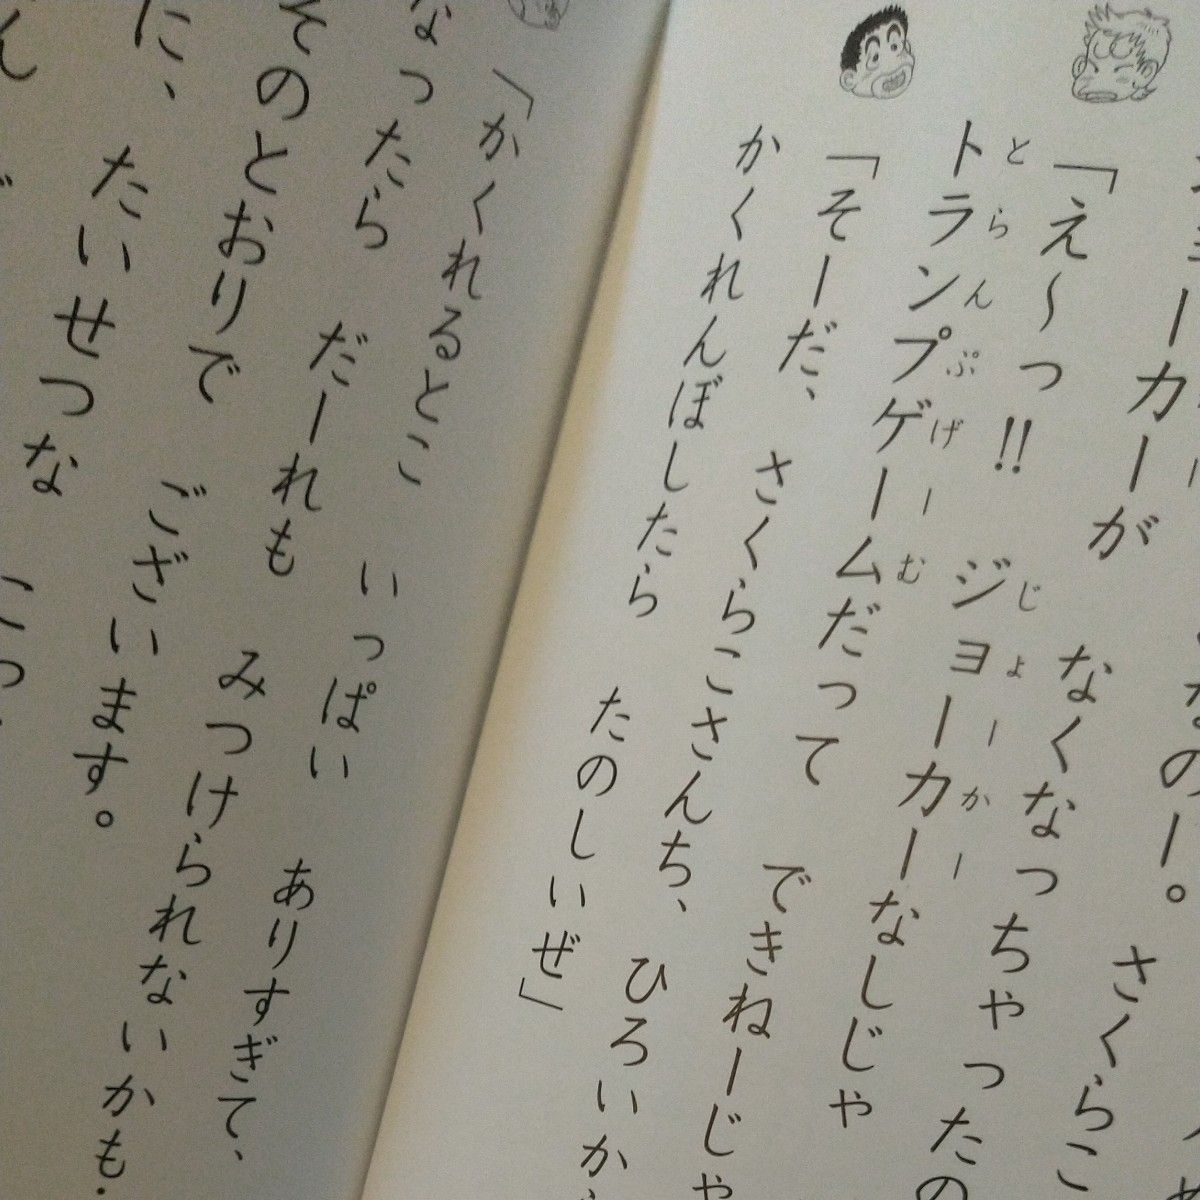 なのー。 さくらこ
ョーカーが なくなっちゃったの
「え〜っ!! ジョーカーなしじゃ
じょーかー
トランプゲームだって できねーじゃ
とらんぷげーむ
「そーだ、 さくらこさんち、 ひろいか
かくれんぼしたら たのしいぜ」
「かくれるとこ いっぱい ありすぎて、
なったら だーれも みつけられないかも
そのとおりで ございます。
に、 たいせつな